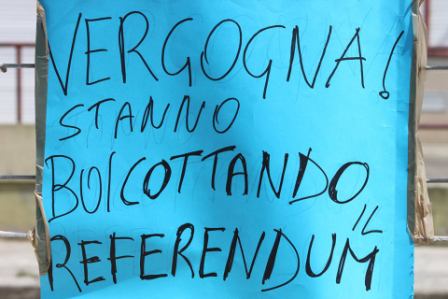 VERGOGNA!
STANNO
BOICOTTANDO
IL
REFERENDUM